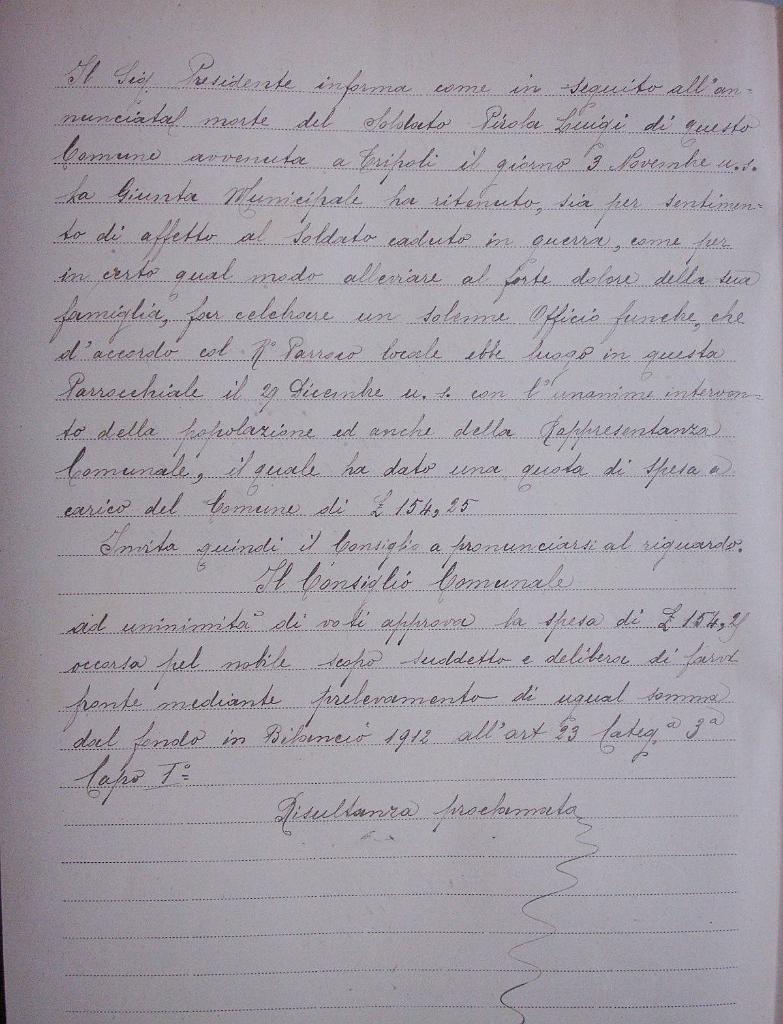 Il Sig. Presidente informa come in seguito all'an-
nunciata morte del Soldato Pirola Luigi di questo
Comune avvenuta a Tripoli il giorno 3 Novembre u.s.
la Giunta Municipale ha ritenuto, sia per sentimen-
to di affetto al Soldato caduto in guerra, come per
in certo qual modo alleviare al forte dolore della sua
famiglia, far celebrare un solenne Officio funebre, che
d'accordo col R.º Parroco locale ebbe luogo in questa
Parrocchiale il 29 Dicembre u. s. con l'unanime interven-
to della popolazione ed anche della Rappresentanza
Comunale, il quale ha dato una quota di spesa a
carico del Comune di £ 154,25
Invita quindi il Consiglio a pronunciarsi al riguardo.
Il Consiglio Comunale
ad uninimità di voti approva la spesa di £ 154,25
occorsa pel nobile scopo suddetto e delibera di farvi
fronte mediante prelevamento di ugual somma
dal fondo in Bilancio 1912 all'art 23 Categ.ª 3ª
Capo Iº=
Risultanza proclamata